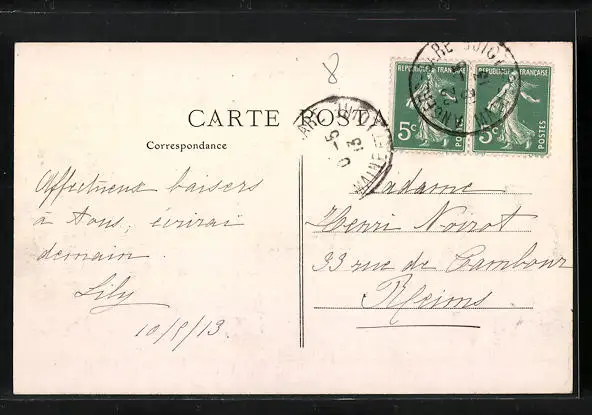 8
CARTE POSTA
Correspondance
RÉPUBLIQUE FRANÇAISE
5c
POSTES
RÉPUBLIQUE FRANÇAISE
5c
POSTES
Affectueux baisers
à tous, écrirai
demain
Lily
10/5/13.
Madame
Henri Noirot
33 rue de Cambour
Rheims